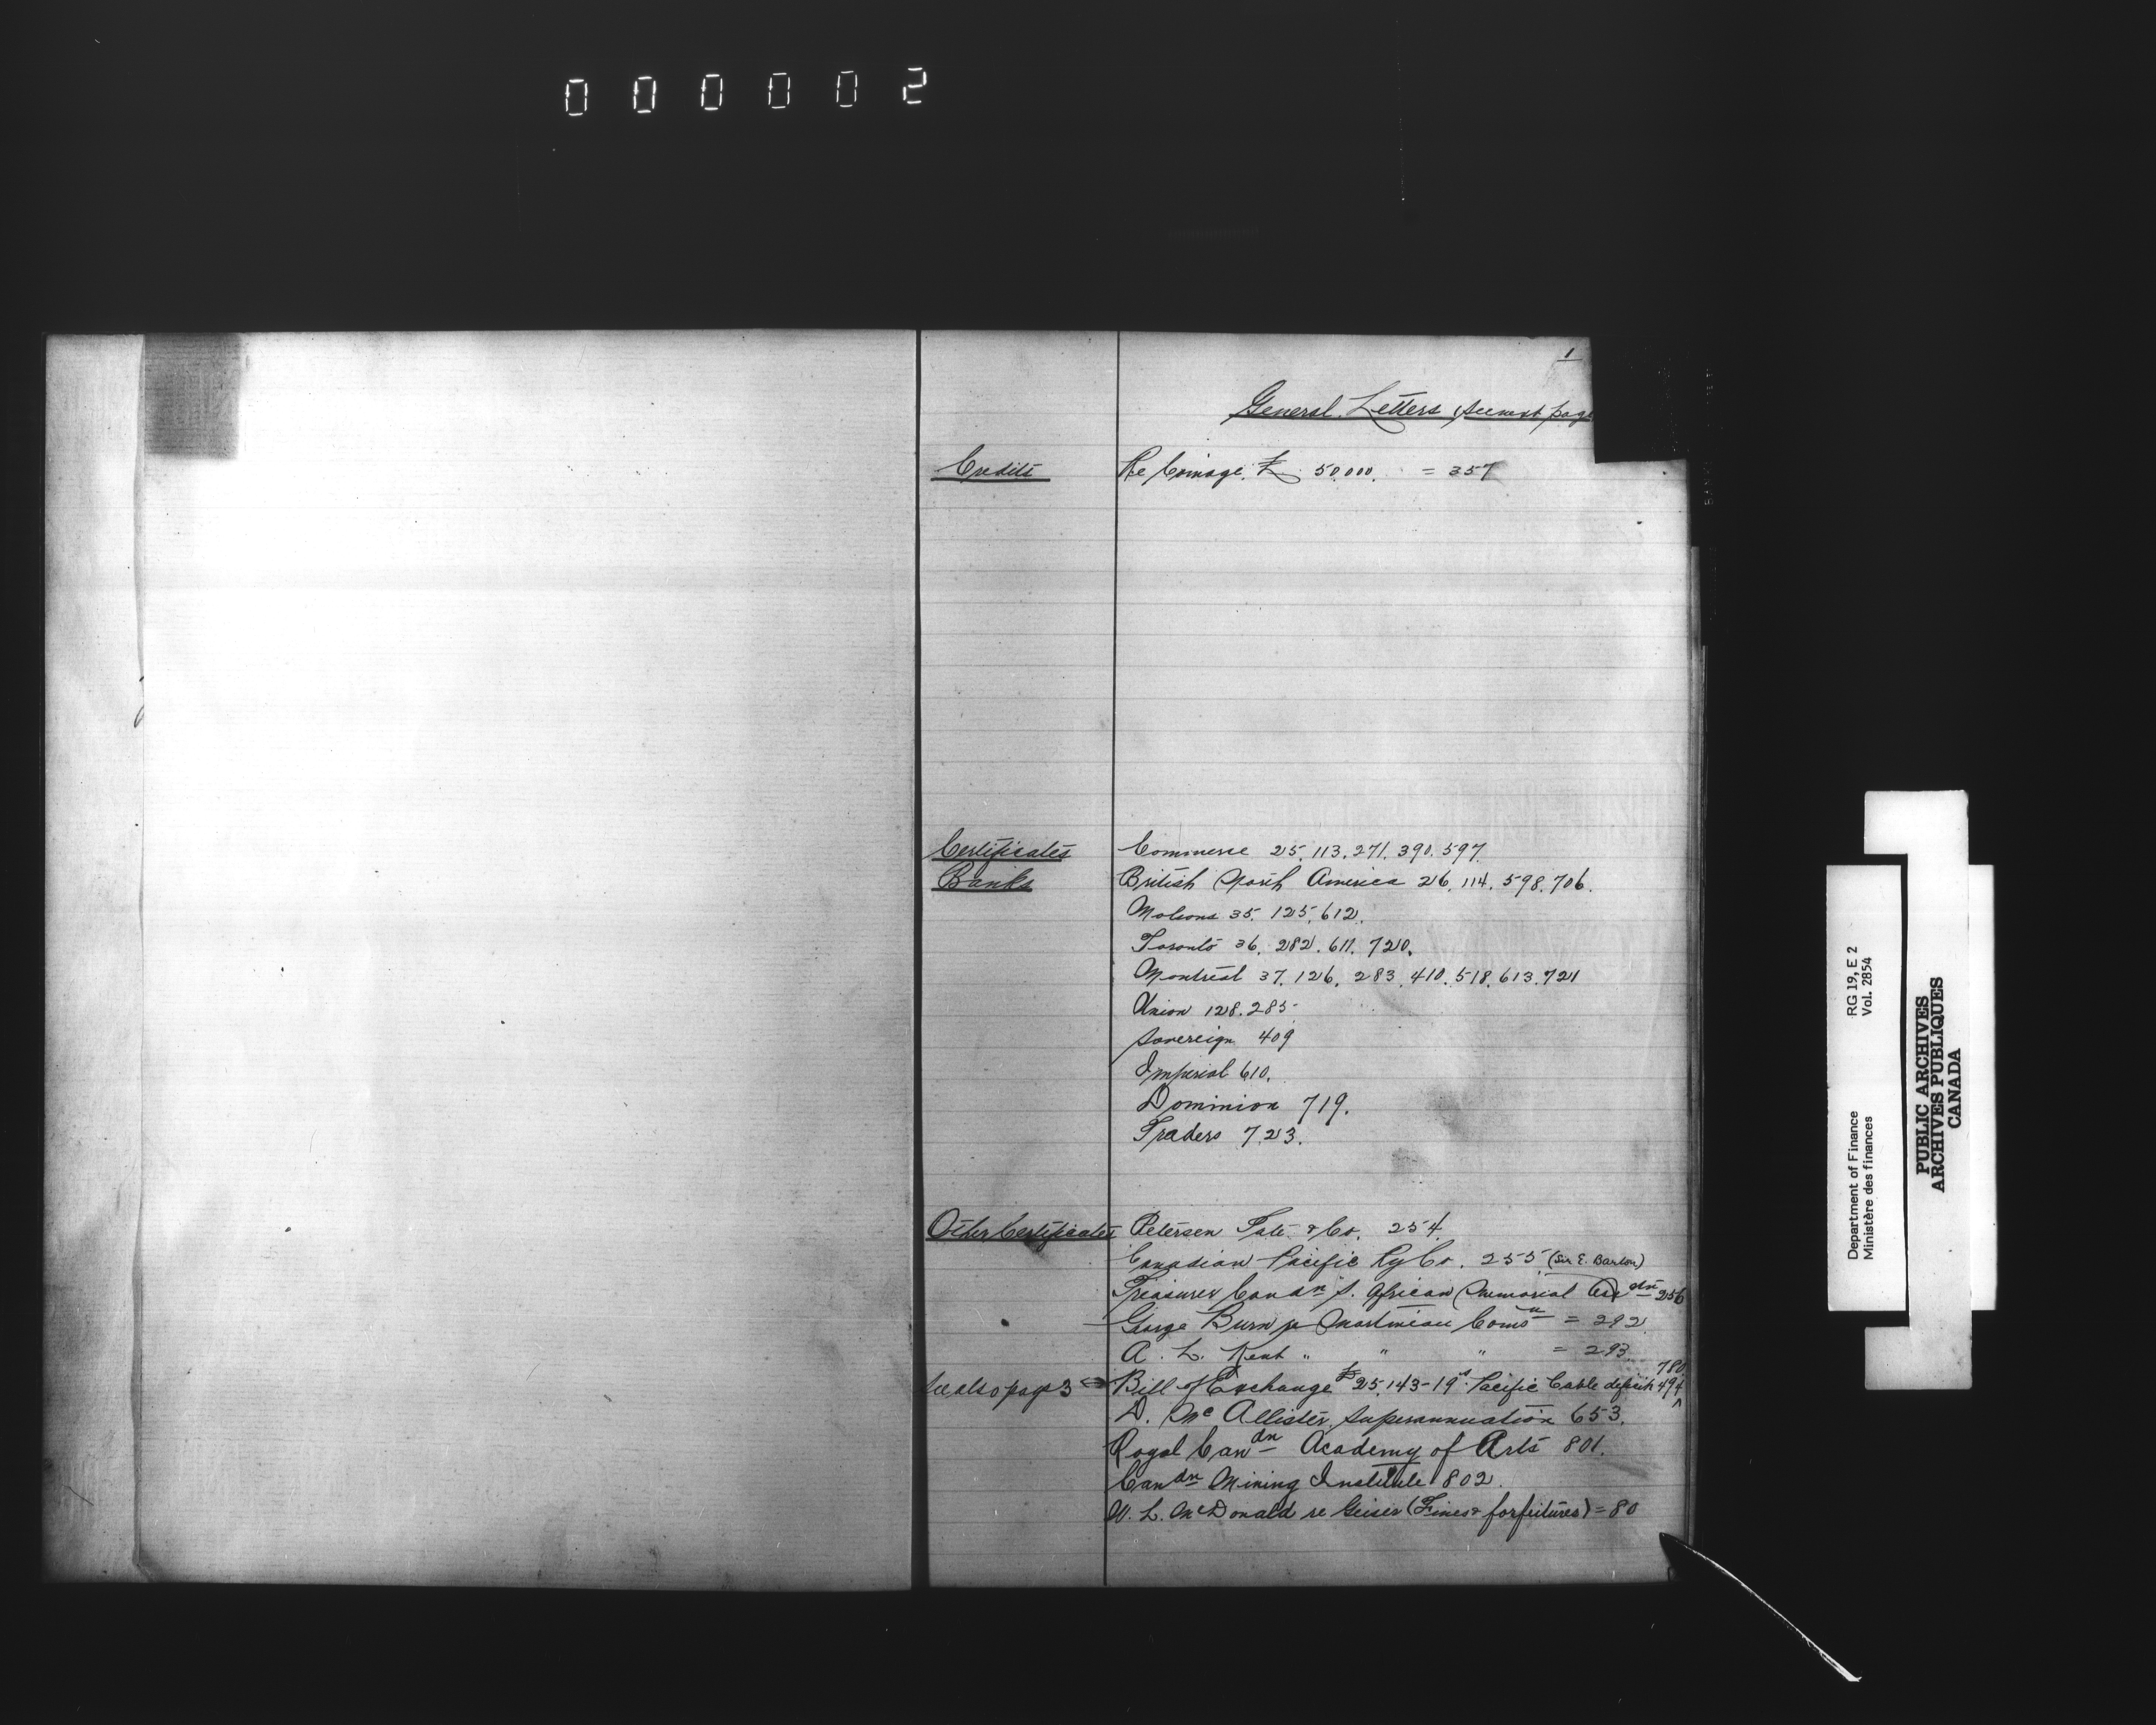 000002
1
General Letters see next page
Credits Re Coinage. £ 50,000. = 357
Certificates Commerce 25. 113. 271. 390. 597.
Banks British North America 26. 114. 598. 706.
Molsons 35. 125. 612.
Toronto 36. 282. 611. 720.
Montreal 37. 126. 283. 410. 518. 613. 721
Union 128. 285.
Sovereign 409
Imperial 610.
Dominion 719.
Traders 723.
Other Certificates Petersen Tate & Co. 254.
Canadian Pacific Ry Co. 255 (Sir E. Barton)
Treasurer Canadn S. African Memorial 256
George Burn re Martineau Comsn = 292.
A. L. Kent " " " = 293.
780
See also page 3 Bill of Exchange £25,143-19s. Pacific Cable deficit 494
D. McAllister, Superannuation 653.
Royal Candn Academy of Arts 801.
Candn Mining Institute 802.
W. L. McDonald re Geiser (Fines & forfeitures) = 80
Department of Finance RG 19, E 2
Ministère des finances Vol. 2854
PUBLIC ARCHIVES
ARCHIVES PUBLIQUES
CANADA